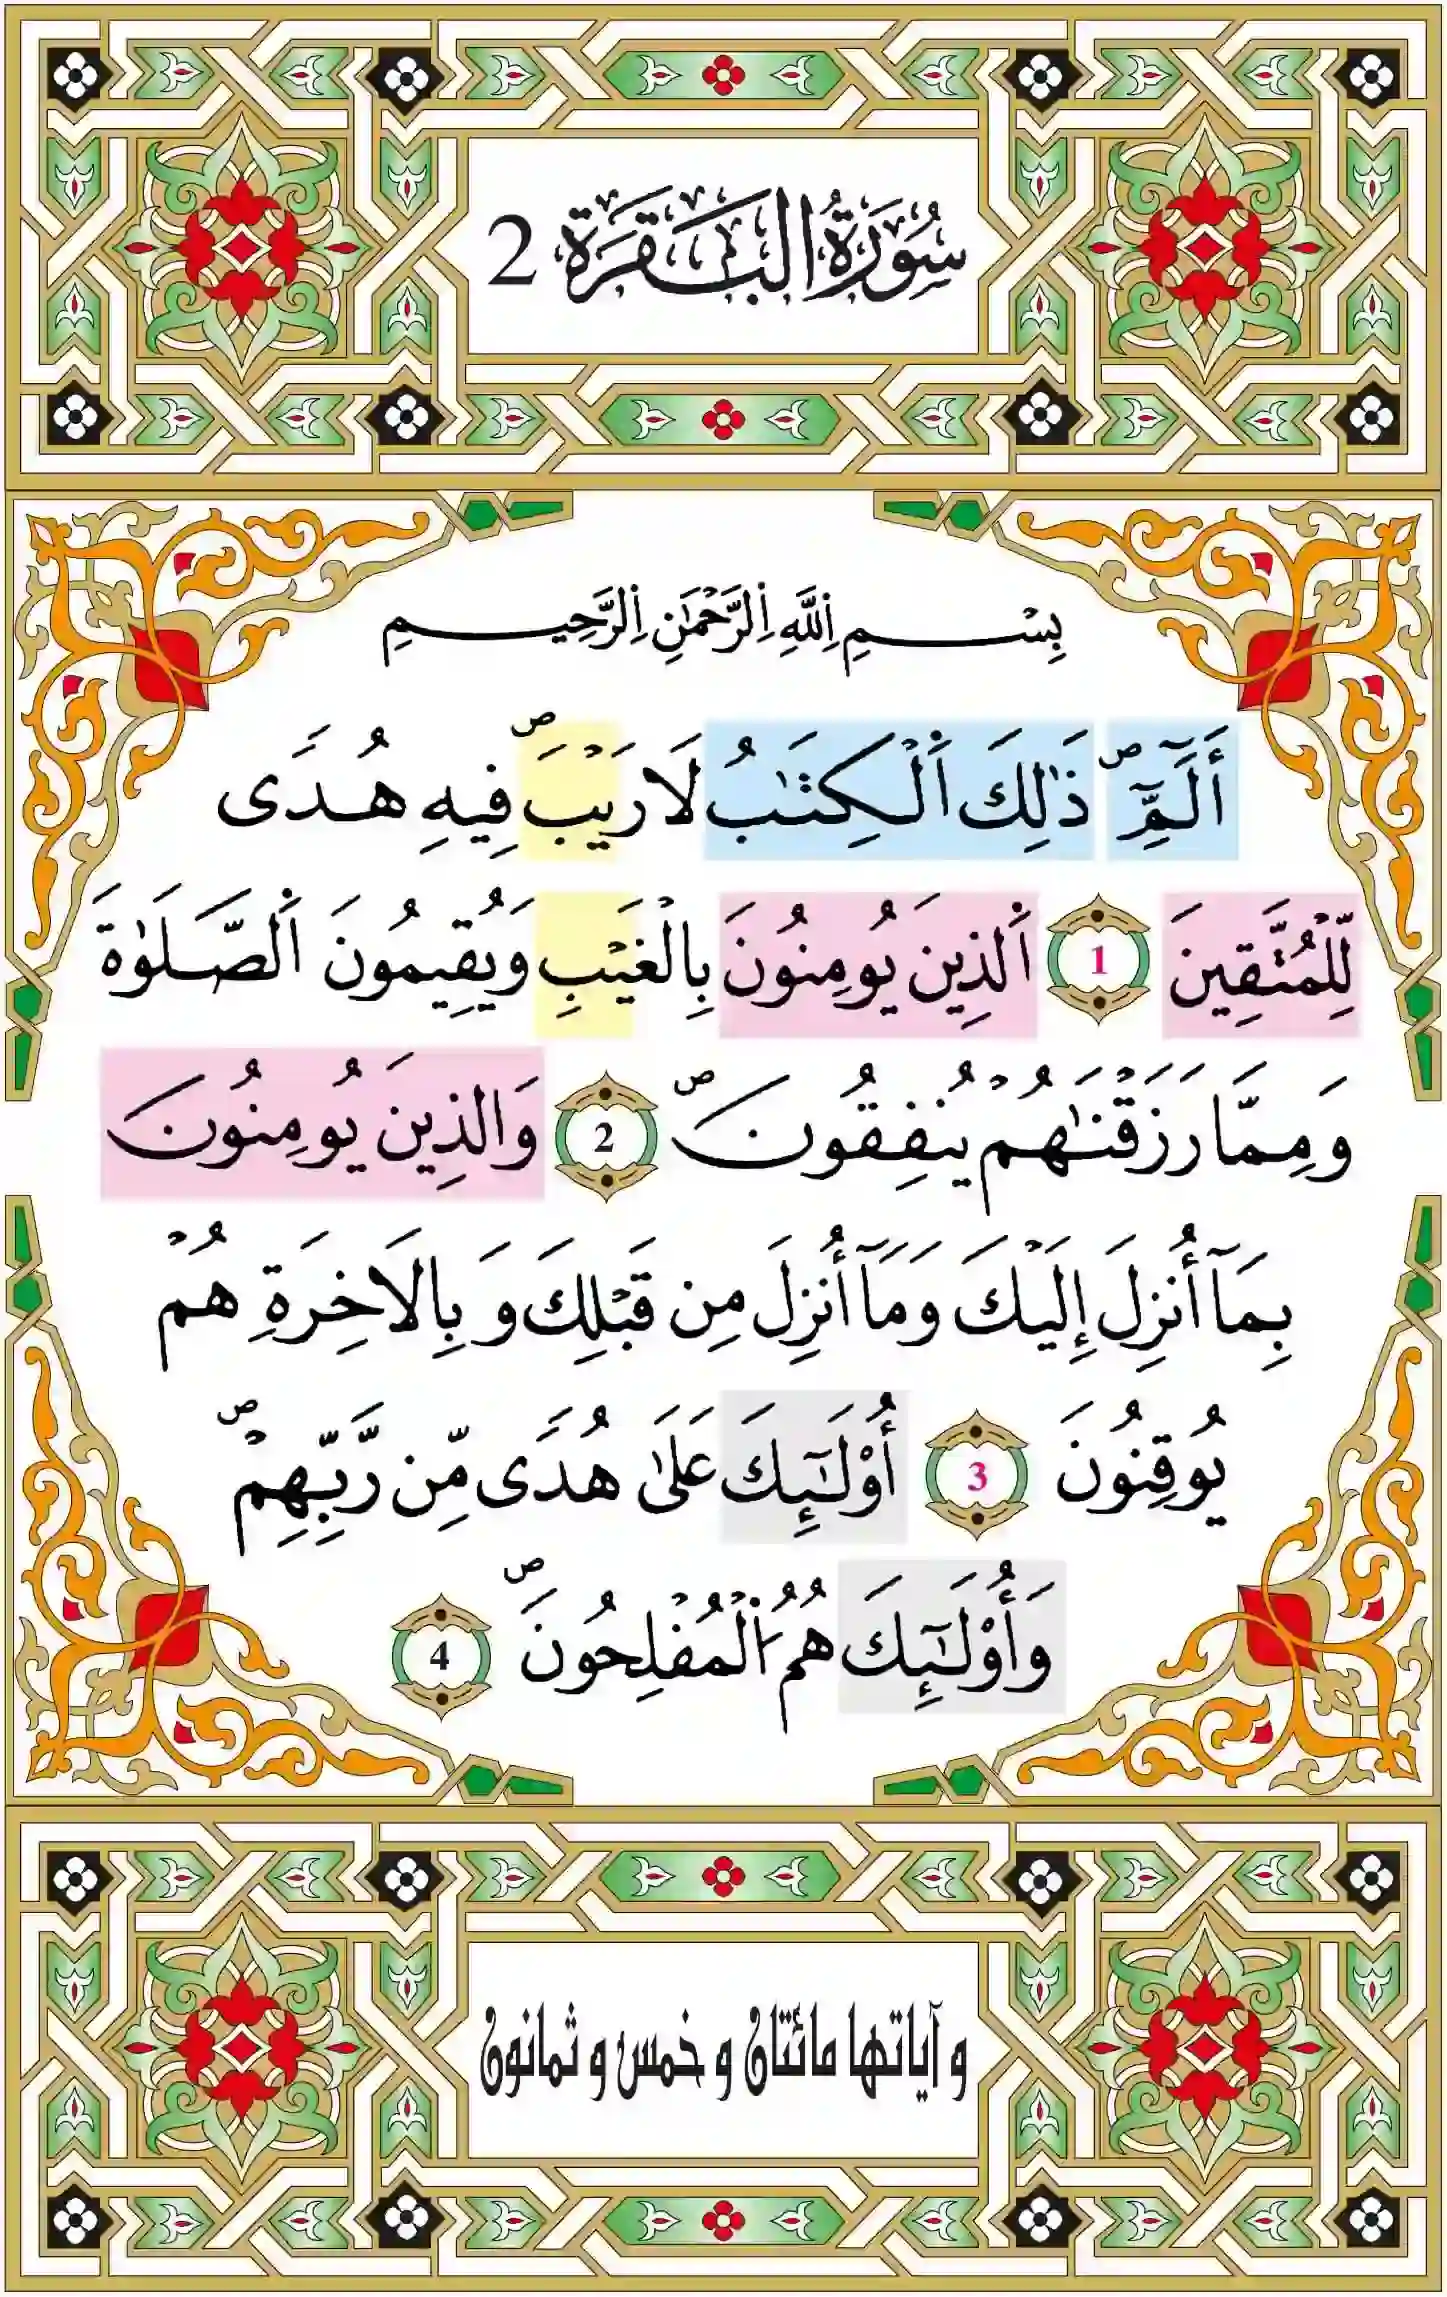 سُورَةُ الْبَقَرَةِ 2
بِسْمِ اِللَّهِ اِلرَّحْمَٰنِ اِلرَّحِيمِ
أَلَٓمِّٓۖ ذَٰلِكَ اَلْكِتَٰبُ لَا رَيْبَۖ فِيهِ هُدىَ
لِّلْمُتَّقِينَ 1 اَلذِينَ يُومِنُونَ بِالْغَيْبِ وَيُقِيمُونَ اَلصَّلَوٰةَ
وَمِمَّا رَزَقْنَٰهُمْ يُنفِقُونَۖ 2 وَالذِينَ يُومِنُونَ
بِمَآ أُنزِلَ إِلَيْكَ وَمَآ أُنزِلَ مِن قَبْلِكَ وَبِالَاخِرَةِ هُمْ
يُوقِنُونَ 3 أُوْلَٰٓئِكَ عَلَىٰ هُدىَ مِّن رَّبِّهِمْۖ
وَأُوْلَٰٓئِكَ هُمُ اُلْمُفْلِحُونَۖ 4
و آياتها مائتان و خمس و ثمانون